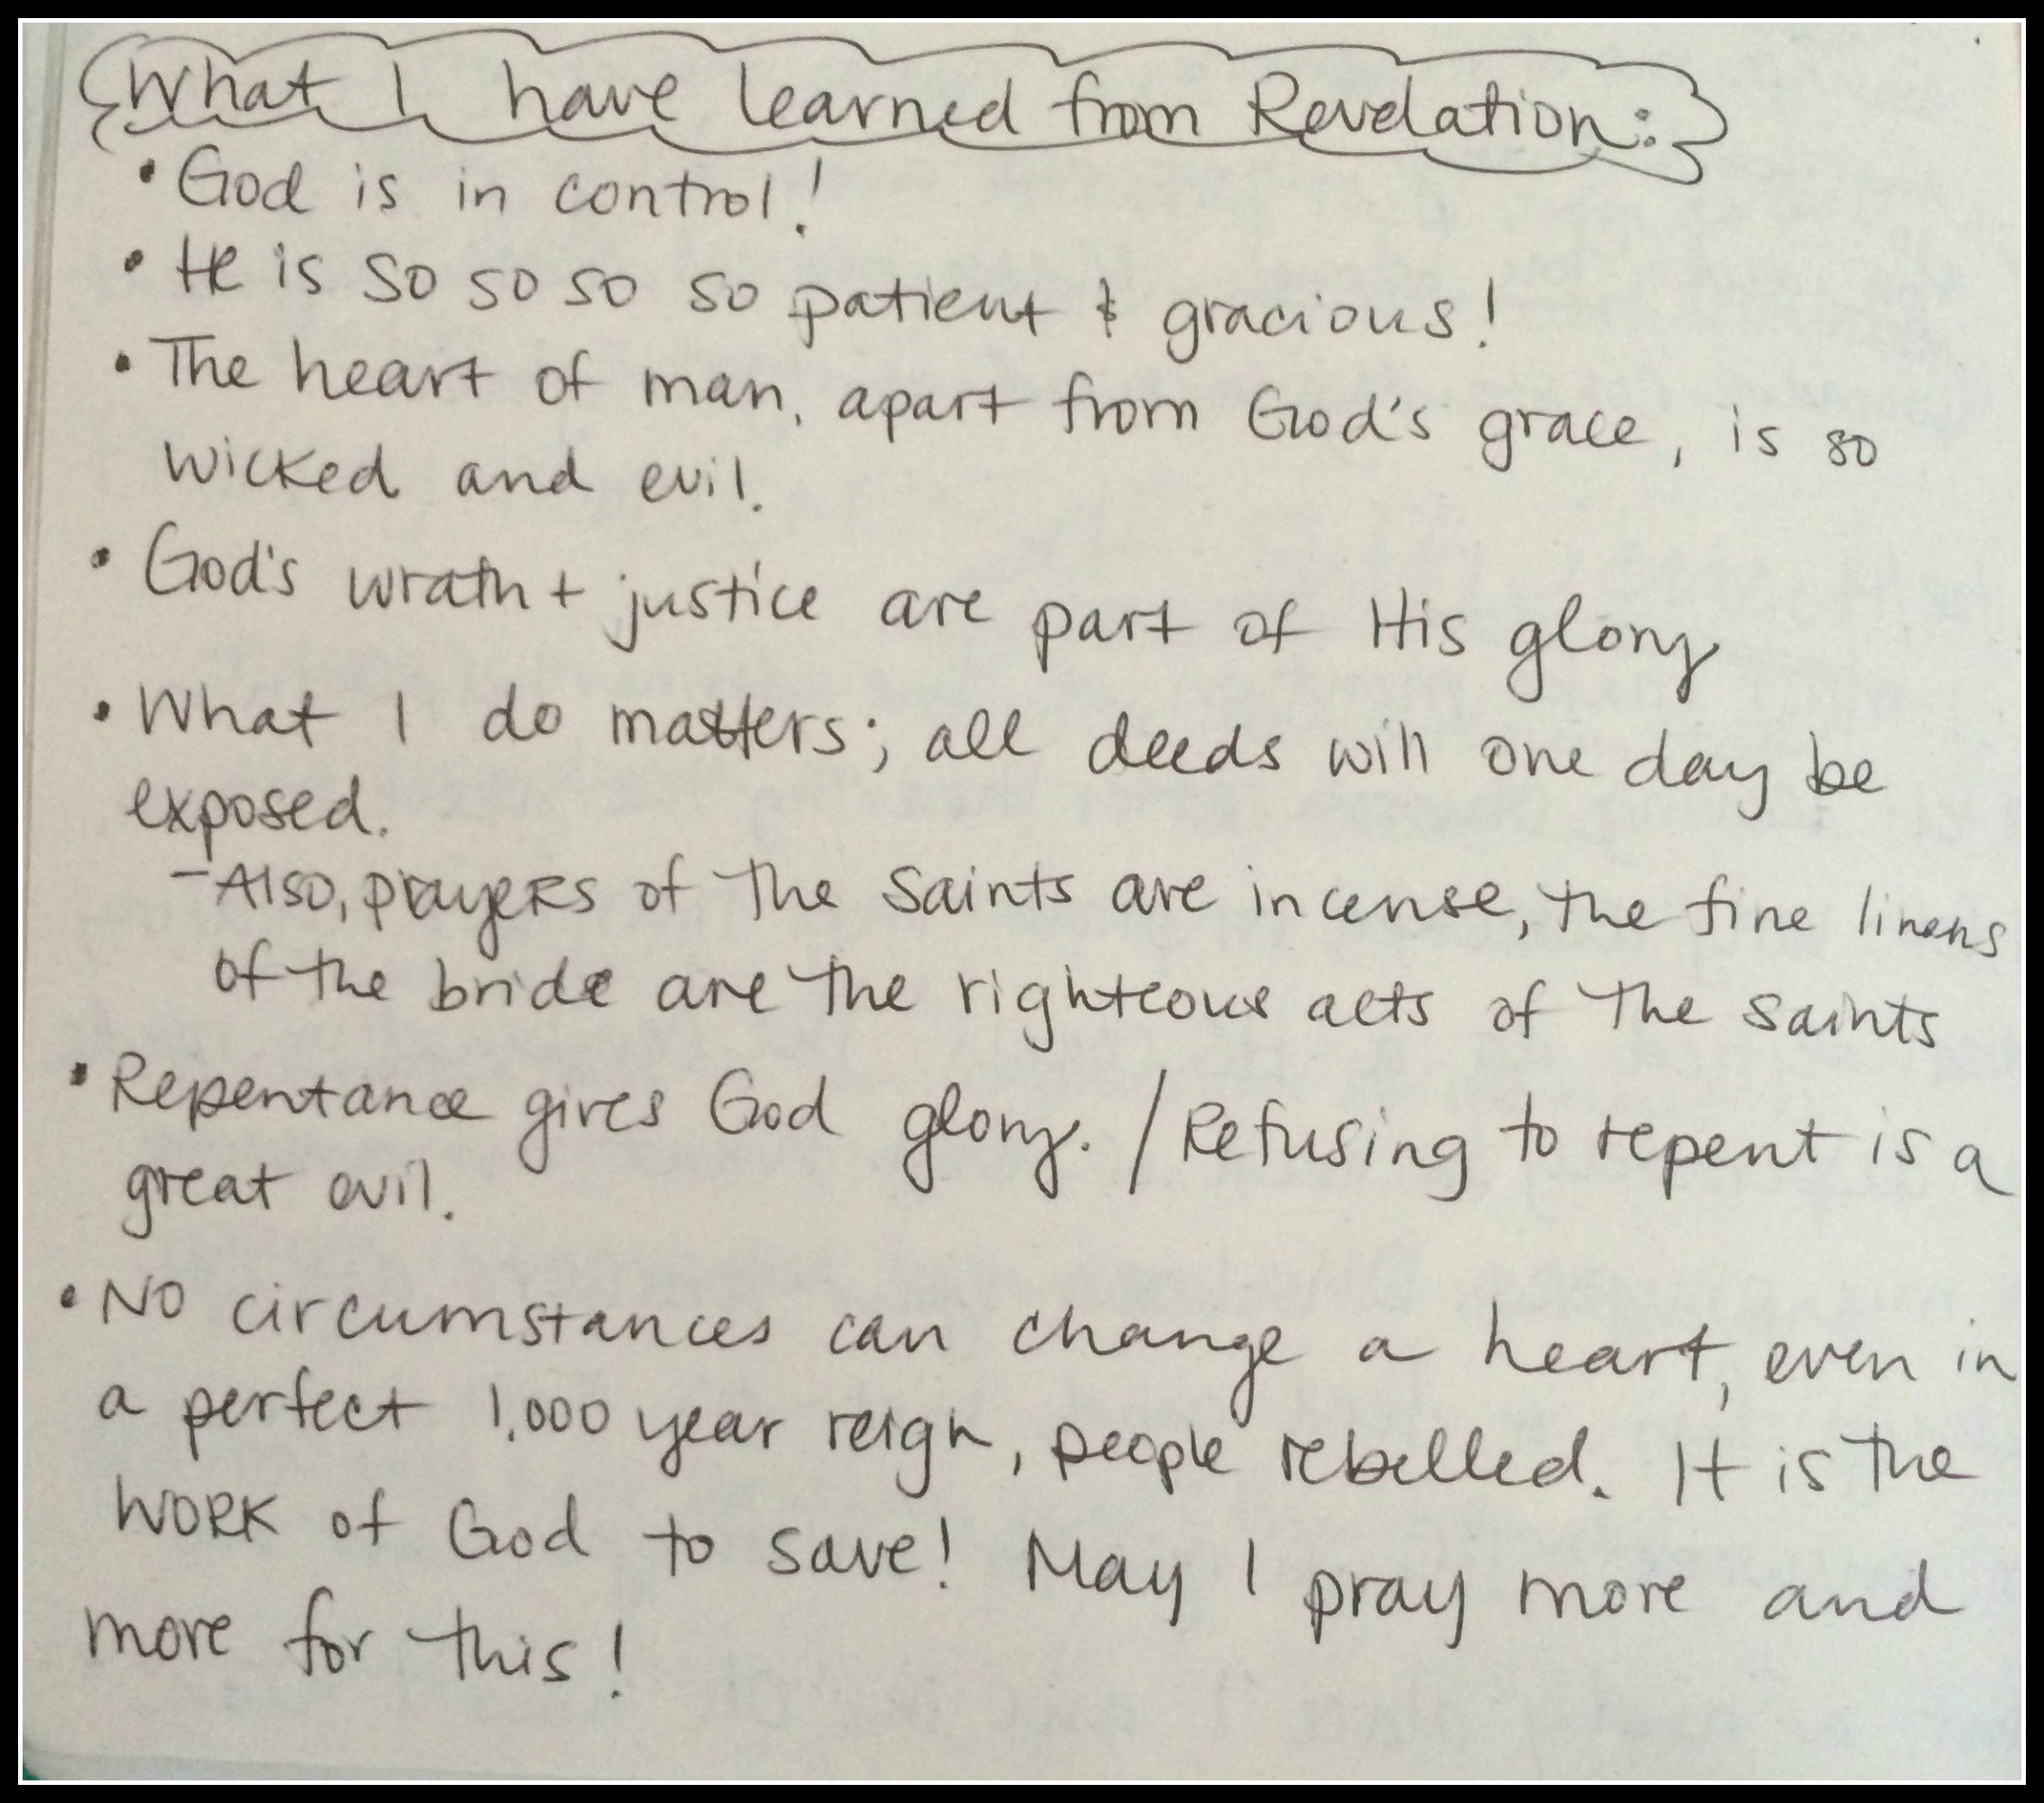 What I have learned from Revelation:
• God is in control!
• He is so so so so patient & gracious!
• The heart of man, apart from God's grace, is so
wicked and evil.
• God's wrath + justice are part of His glory
• What I do matters; all deeds will one day be
exposed.
- Also, prayers of the saints are incense, the fine linens
of the bride are the righteous acts of the saints
• Repentance gives God glory. / Refusing to repent is a
great evil.
• No circumstances can change a heart, even in
a perfect 1,000 year reign, people rebelled. It is the
work of God to save! May I pray more and
more for this!